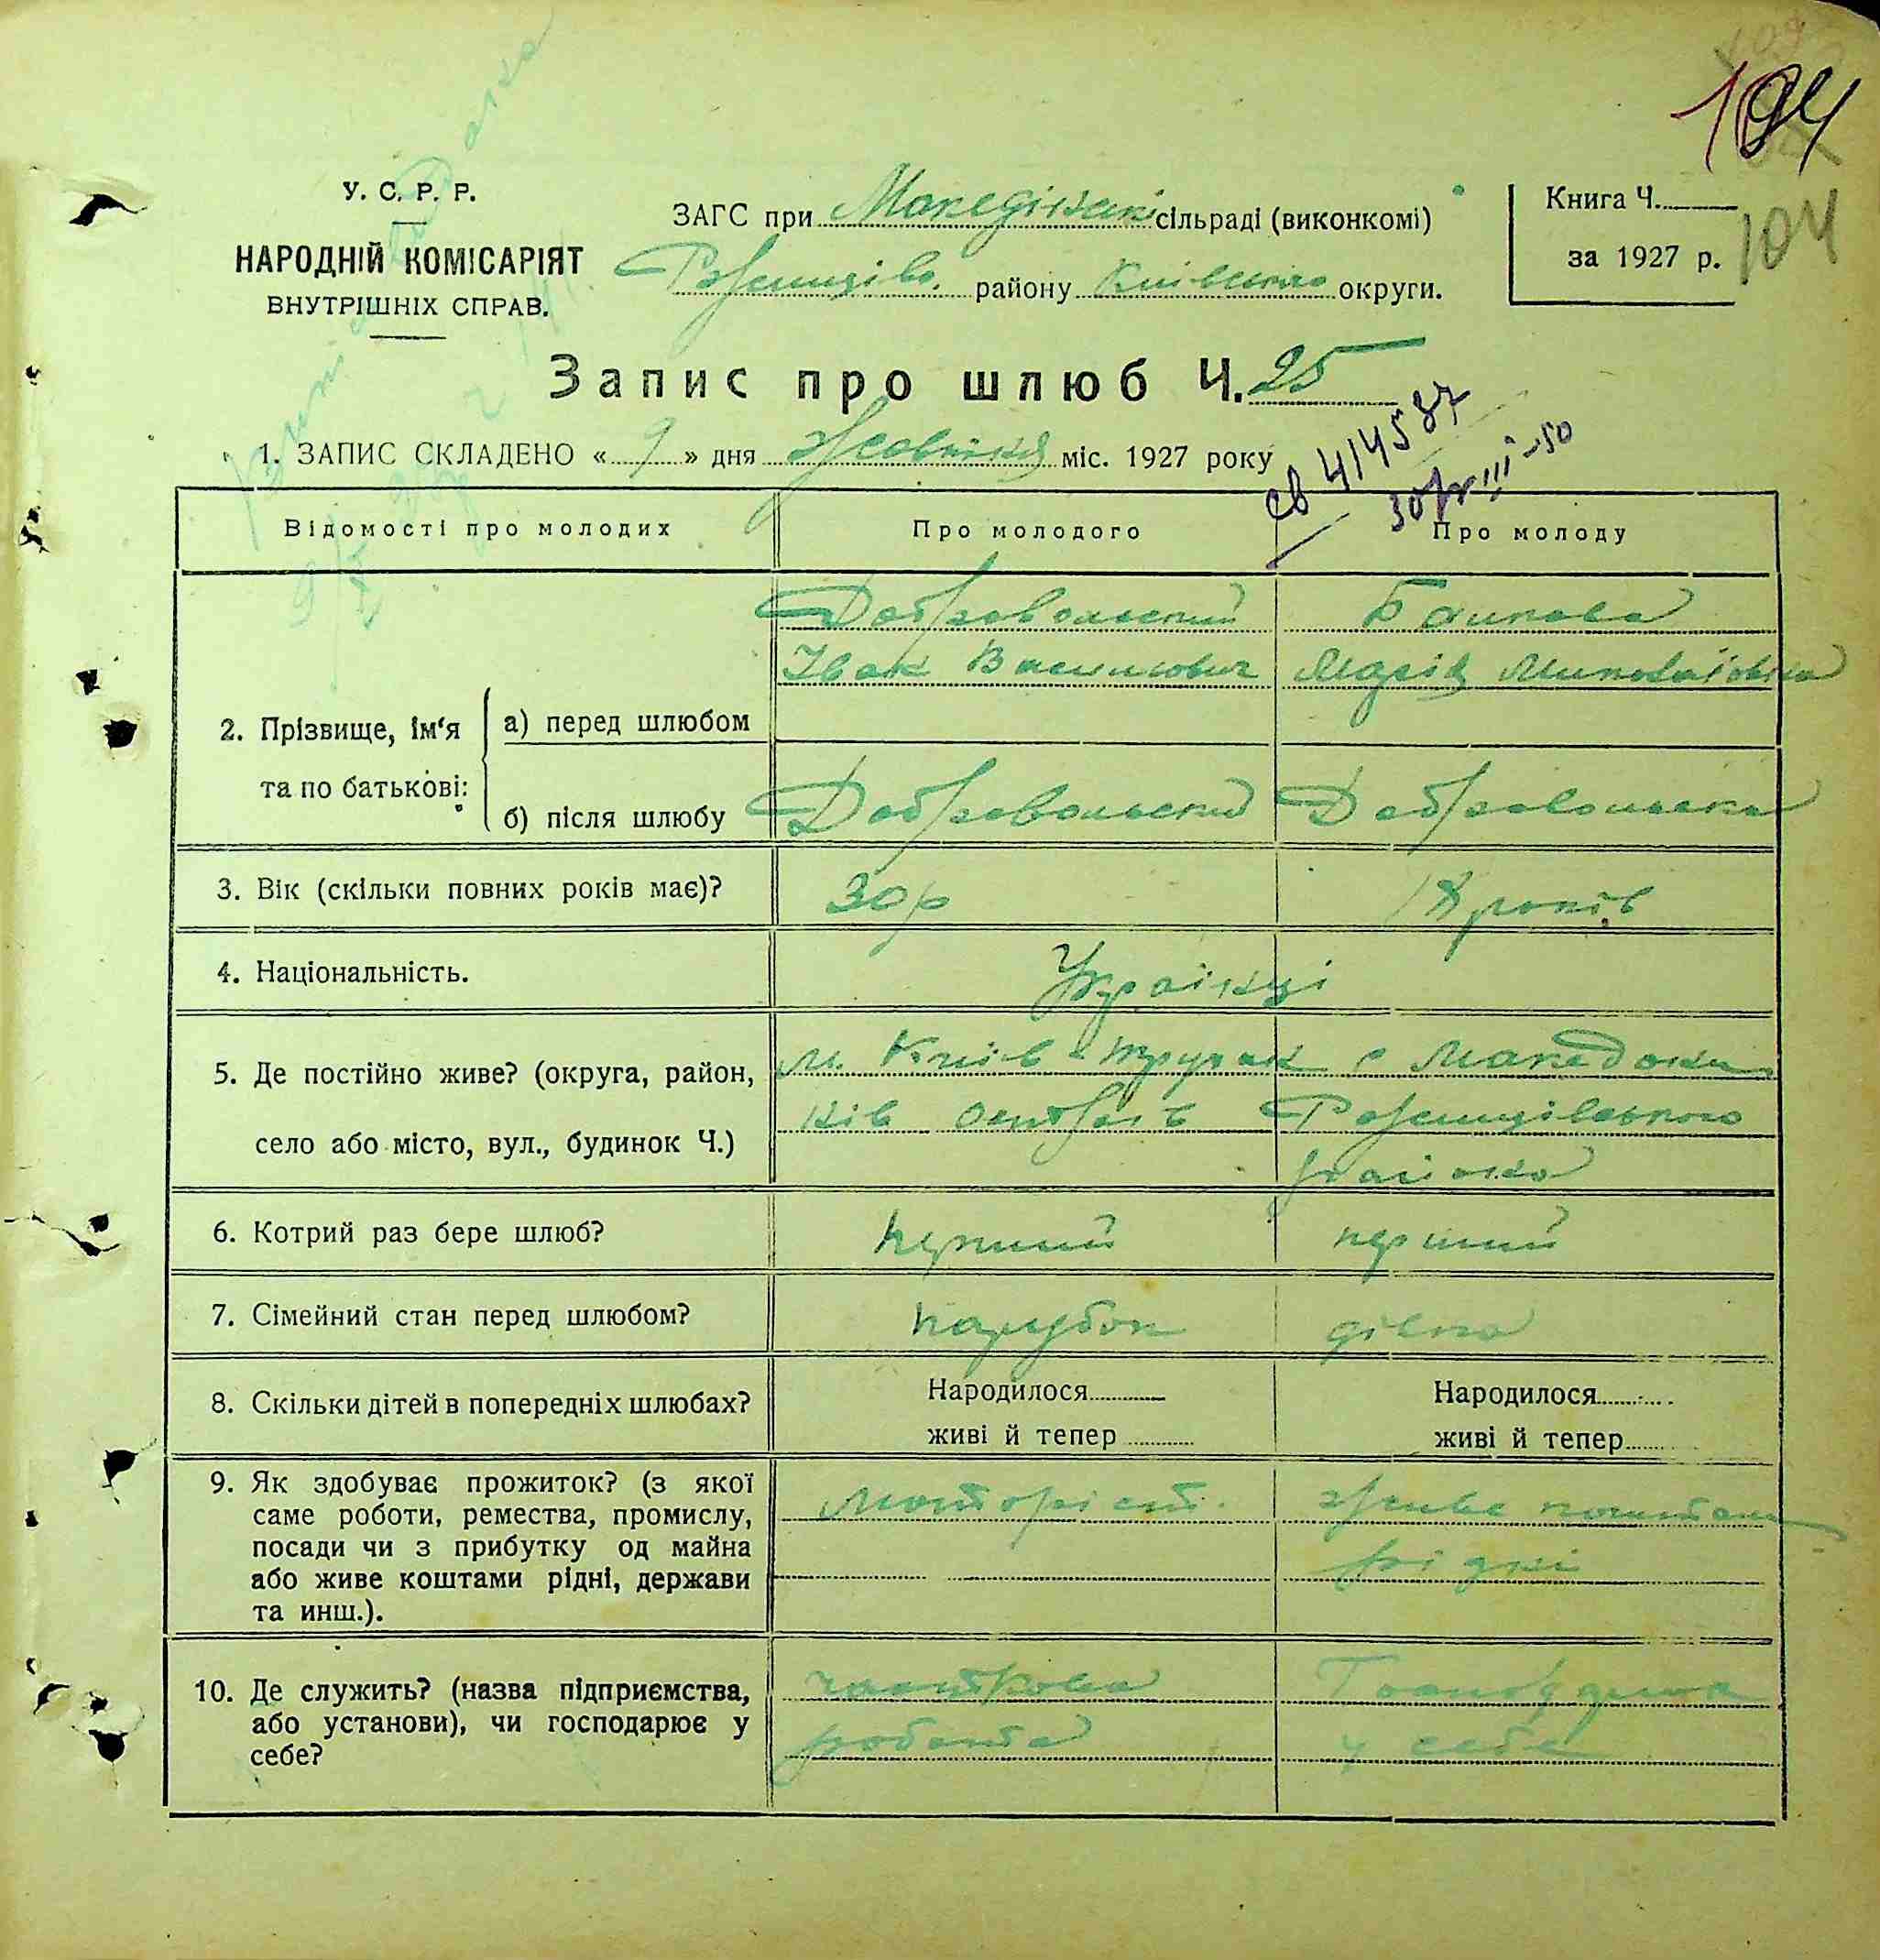 194
104
У. С. Р. Р.
НАРОДНІЙ КОМІСАРІЯТ
ВНУТРІШНІХ СПРАВ.
ЗАГС при Македінській сільраді (виконкомі)
Ржищів. району Київського округи.
Книга Ч.
за 1927 р.
Запис про шлюб Ч. 25
1. ЗАПИС СКЛАДЕНО « 9 » дня Жовтня міс. 1927 року
св 414587
30/VIII-50
Відомості про молодих Про молодого Про молоду
2. Прізвище, ім'я та по батькові:
а) перед шлюбом
Добровольский
Іван Василович
Марія Миколаївна
б) після шлюбу
Добровольский
Добровольська
3. Вік (скільки повних років має)?
30 р
18 років
4. Національність.
Українці
5. Де постійно живе? (округа, район,
село або місто, вул., будинок Ч.)
м. Київ
с Македони
Ржищівського
району
6. Котрий раз бере шлюб?
перший
перший
7. Сімейний стан перед шлюбом?
парубок
дівка
8. Скільки дітей в попередніх шлюбах?
Народилося
живі й тепер
Народилося
живі й тепер
9. Як здобуває прожиток? (з якої
саме роботи, ремества, промислу,
посади чи з прибутку од майна
або живе коштами рідні, держави
та инш.).
Моторіст.
живе коштами
рідні
10. Де служить? (назва підприємства,
або установи), чи господарює у
себе?
робота
у себе